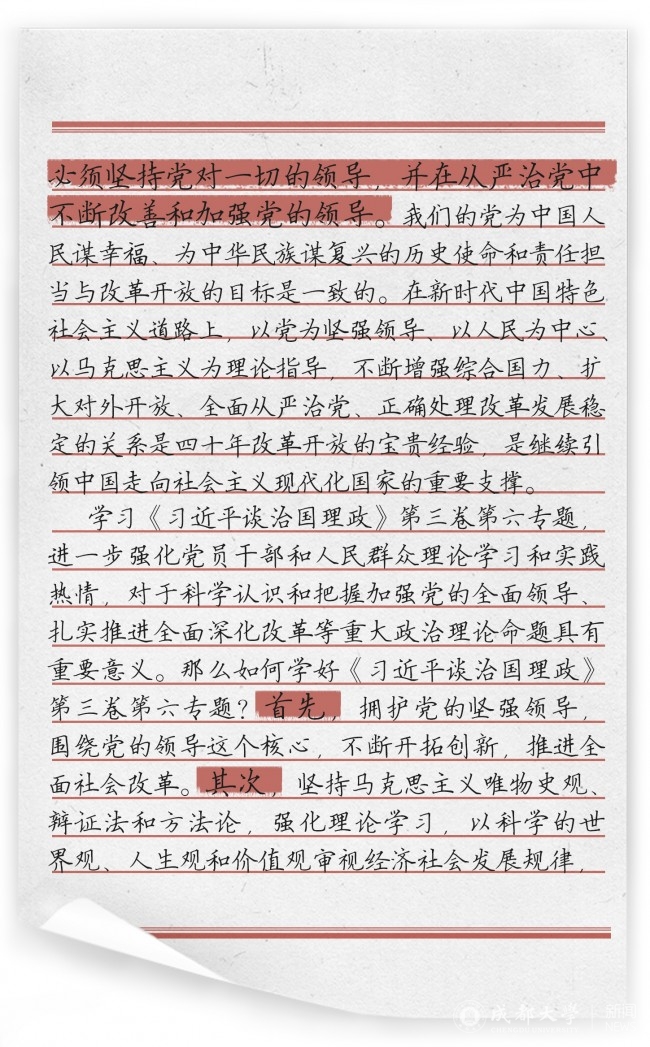 必须坚持党对一切的领导，并在从严治党中
不断改善和加强党的领导。我们的党为中国人
民谋幸福、为中华民族谋复兴的历史使命和责任担
当与改革开放的目标是一致的。在新时代中国特色
社会主义道路上，以党为坚强领导、以人民为中心、
以马克思主义为理论指导，不断增强综合国力、扩
大对外开放、全面从严治党、正确处理改革发展稳
定的关系是四十年改革开放的宝贵经验，是继续引
领中国走向社会主义现代化国家的重要支撑。
学习《习近平谈治国理政》第三卷第六专题，
进一步强化党员干部和人民群众理论学习和实践
热情，对于科学认识和把握加强党的全面领导、
扎实推进全面深化改革等重大政治理论命题具有
重要意义。那么如何学好《习近平谈治国理政》
第三卷第六专题？首先，拥护党的坚强领导，
围绕党的领导这个核心，不断开拓创新，推进全
面社会改革。其次，坚持马克思主义唯物史观、
辩证法和方法论，强化理论学习，以科学的世
界观、人生观和价值观审视经济社会发展规律，
成都大学 | 新闻